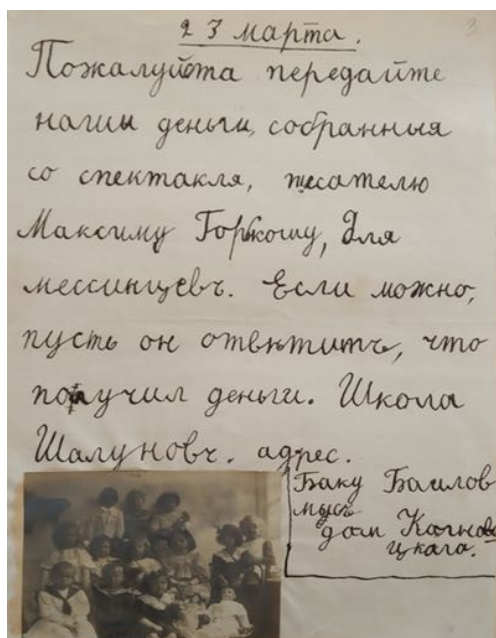 3
23 марта.
Пожалуйста передайте
наши деньги, собранныя
со спектакля, писателю
Максиму Горькому, для
мессинцевъ. Если можно,
пусть он отвѣтитъ, что
получил деньги. Школа
Шалуновъ. адрес.
Баку Баилов
мысъ
дом Когнов
цкаго.